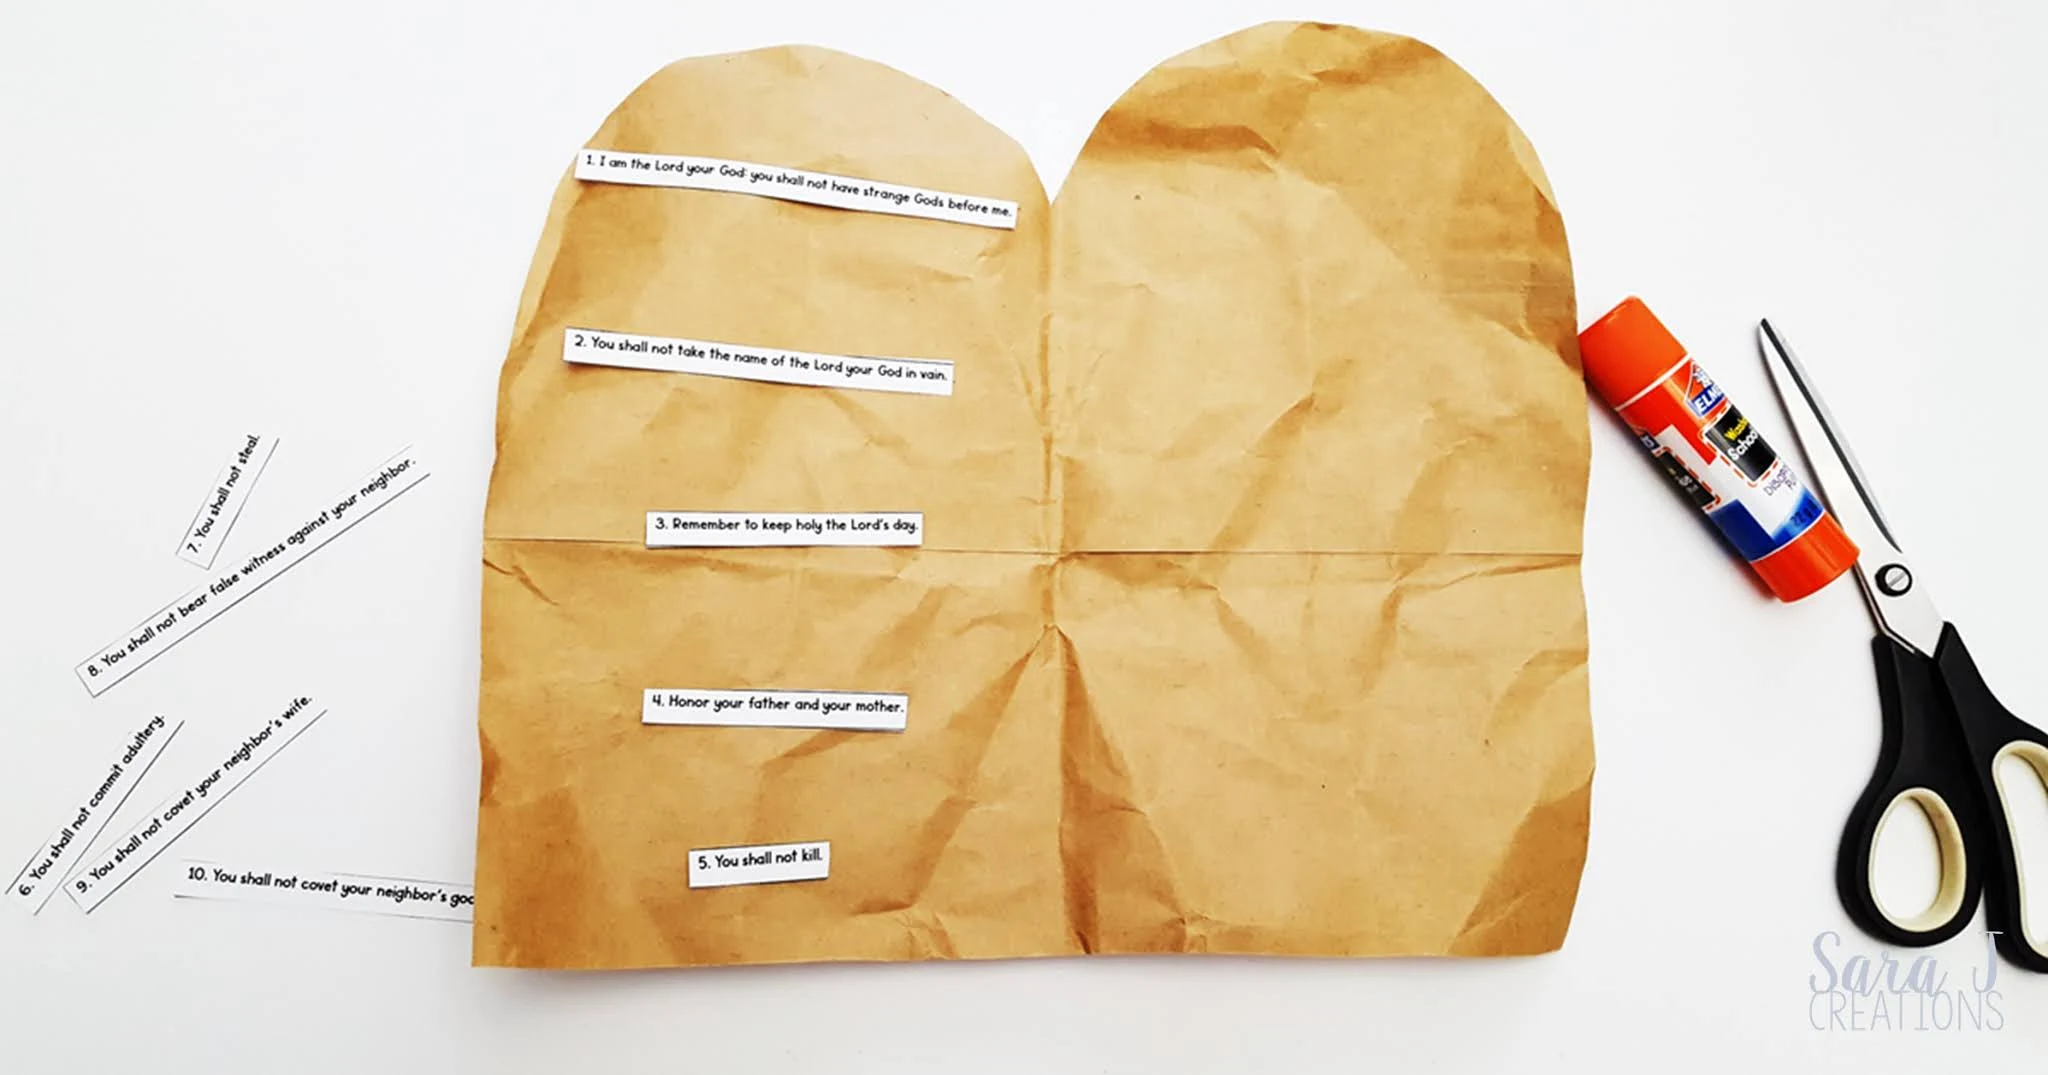 1. I am the Lord your God: you shall not have strange Gods before me.
2. You shall not take the name of the Lord your God in vain.
3. Remember to keep holy the Lord's day.
4. Honor your father and your mother.
5. You shall not kill.
7. You shall not steal.
8. You shall not bear false witness against your neighbor.
6. You shall not commit adultery.
9. You shall not covet your neighbor's wife.
10. You shall not covet your neighbor's goo
ELM
Washa
School
Sara J
CREATIONS